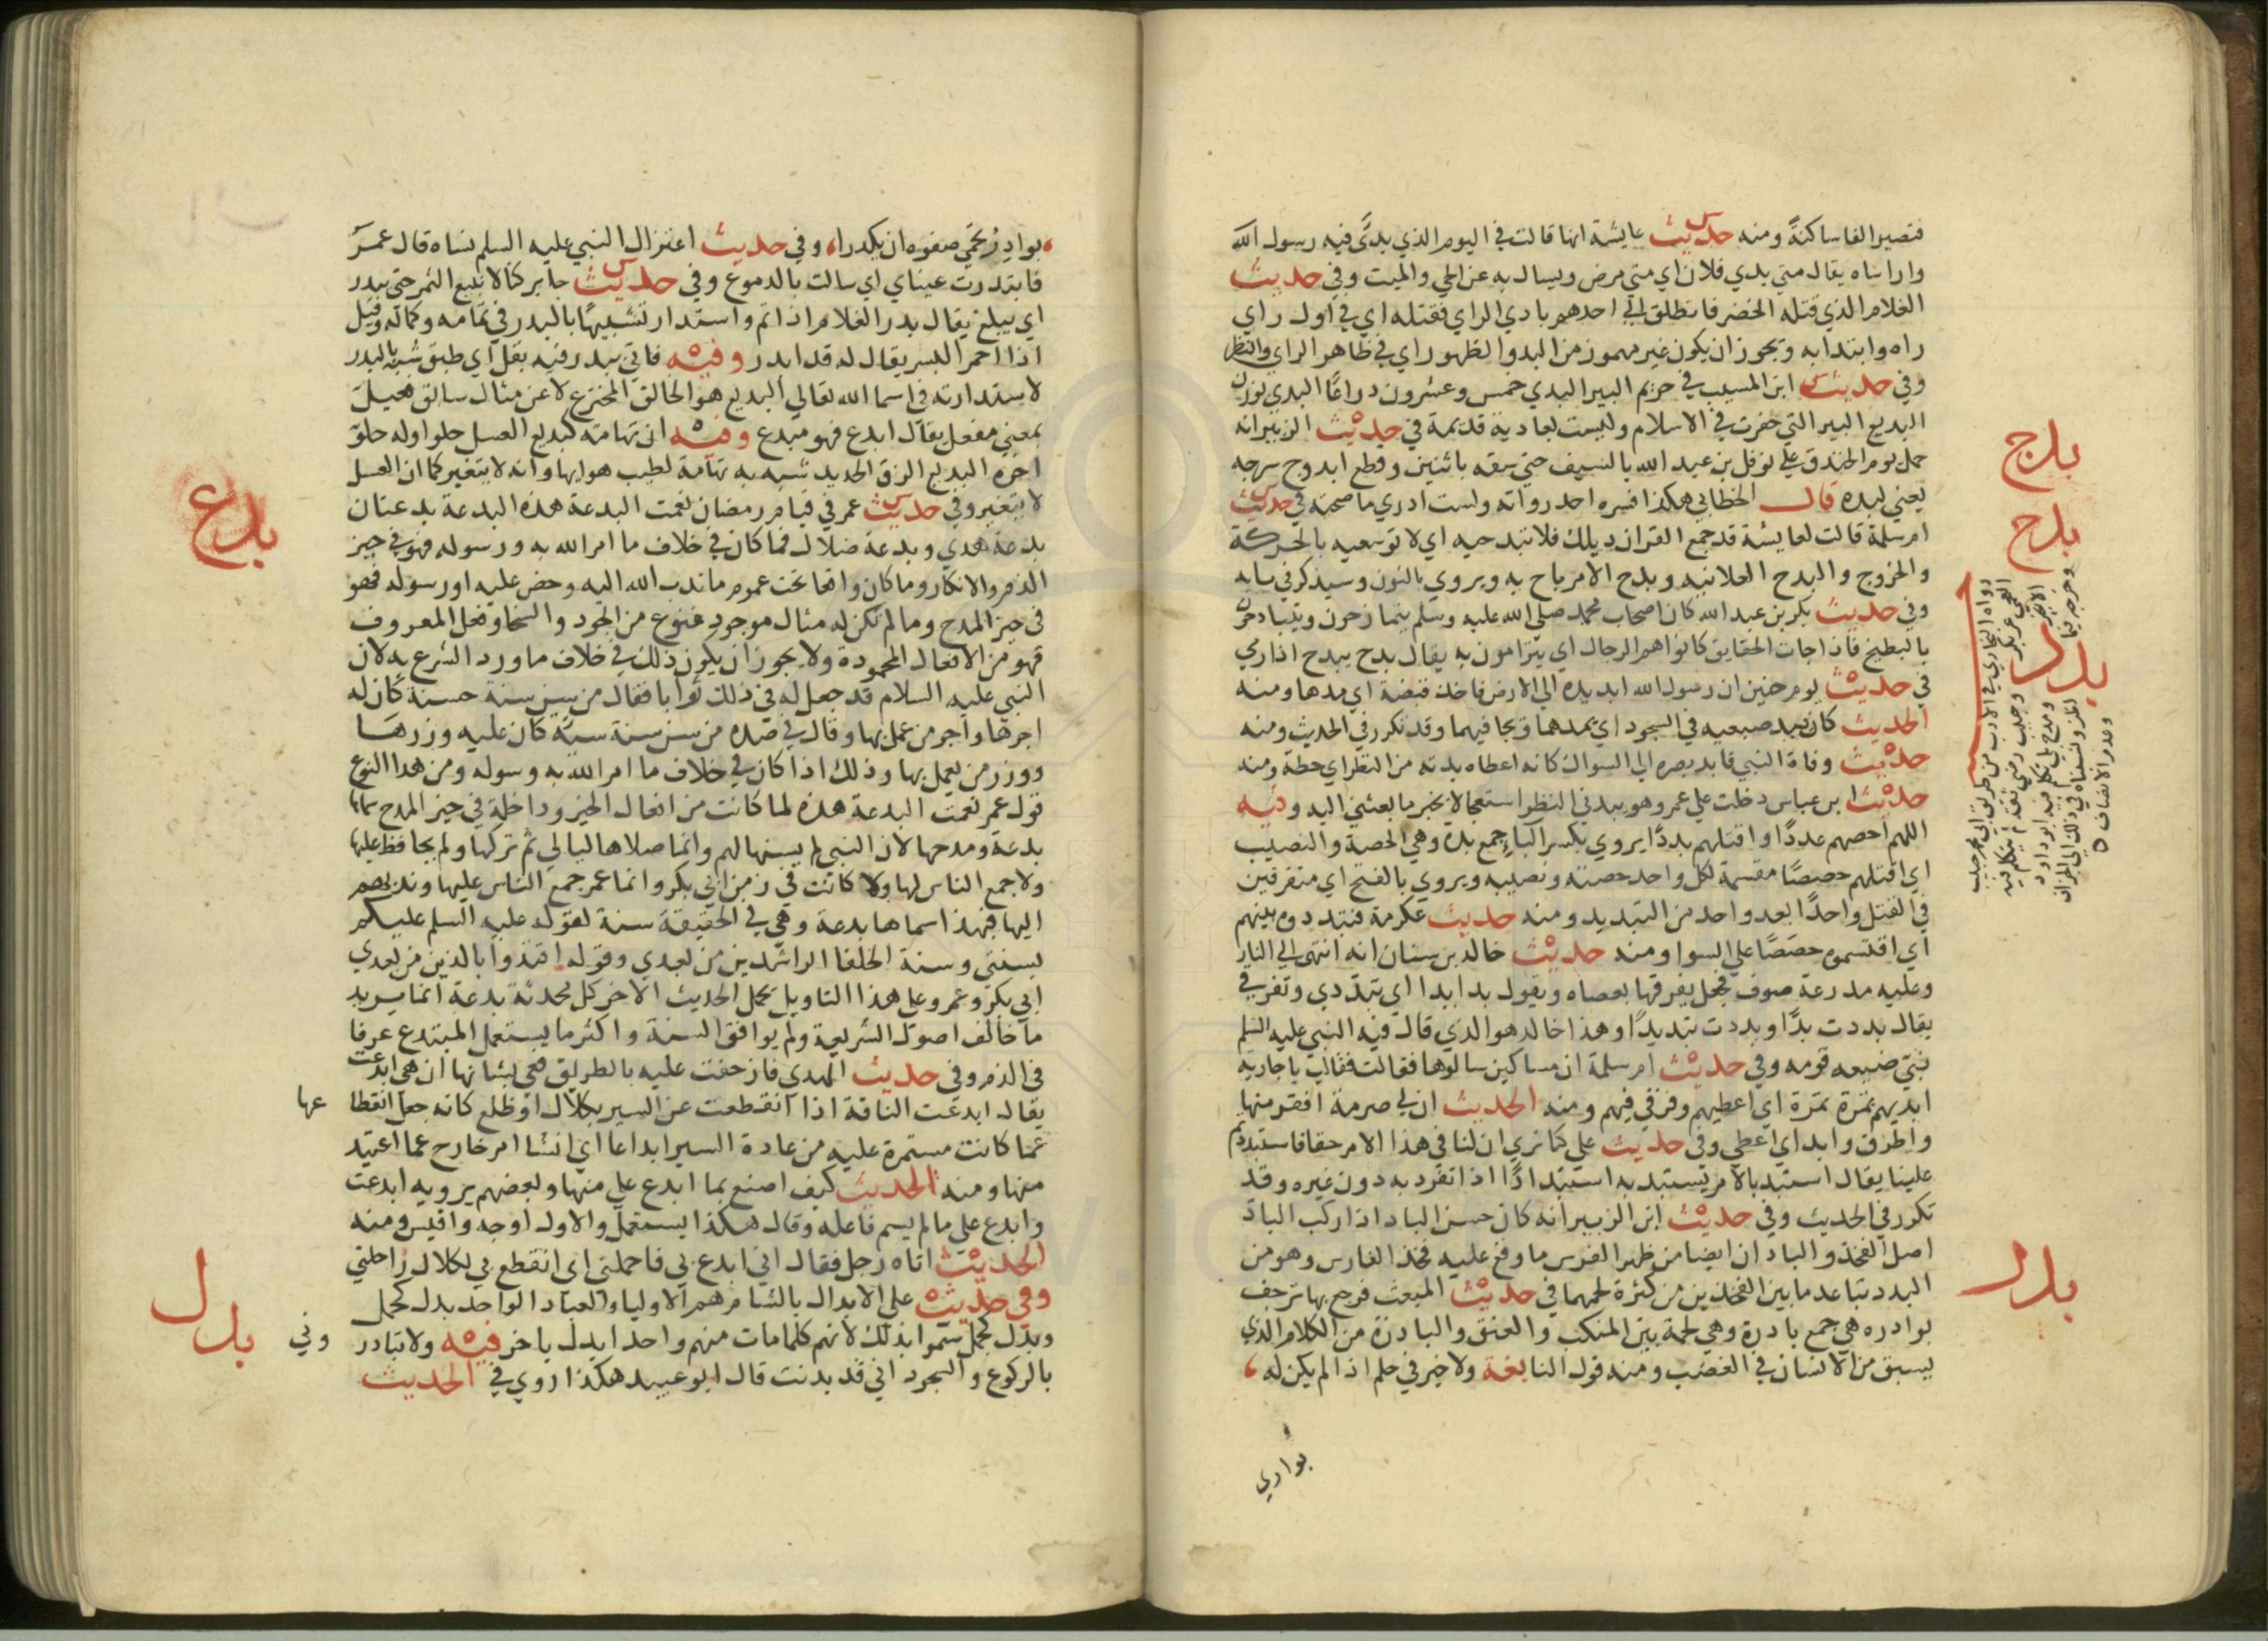 فتصير الفا ساكنة ومنه حديث عايشة انها قالت في اليوم الذي بدئ فيه رسول الله
واراساه يقال متي بدي فلان اي متي مرض ويسال به عن الحي والميت وفي حديث
الغلام الذي قتله الخضر فانطلق الي احدهم بادي الراي فقتله اي في اول راي
راه وابتدا به ويجوز ان يكون غير مهموز من البدو الظهور اي في ظاهر الراي والنظر
وفي حديث ابن المسيب في حريم البير البدي خمس وعشرون دراعًا البدي بوزن
البديع البير التي حفرت في الاسلام وليست بعادية قديمة في حديث الزبير انه
حمل يوم الخندق علي نوفل بن عبد الله بالسيف حتي شقه باثنين وقطع ابدوج سرجه
يعني لبده قال الخطابي هكذا فسره احد رواته ولست ادري ما صحته في حديث
ام سلمة قالت لعايشة قد جمع القران ديلك فلا تبدحيه اي لا توسعيه بالحركة
والخروج والبدح العلانيه وبدح الامر باح به ويروي بالنون وسيذكر في بابه
وفي حديث بكر بن عبد الله كان اصحاب محمد صلي الله عليه وسلم يتمازحون ويتبادحون
بالبطيخ فاذا جات الحقايق كانوا هم الرجال اي يترامون به يقال بدح يبدح اذا رمي
في حديث يوم حنين ان رسول الله ابد يده الي الارض فاخذ قبضة اي مدها ومنه
الحديث كان يبد ضبعيه في السجود اي يمدهما ويجافيهما وقد تكرر في الحديث ومنه
حديث وفاة النبي فابد بصره الي السواك كانه اعطاه بدته من النظر اي حظه ومنه
حديث ابن عباس دخلت علي عمر وهو يبدني النظر استعجالا بخبر ما بعثني اليه وفيه
اللهم احصهم عددًا واقتلهم بددًا يروي بكسر الباء جمع بدة وهي الحصة والنصيب
اي اقتلهم حصصًا مقسمة لكل واحد حصته ونصيبه ويروي بالفتح اي متفرقين
في القتل واحدًا بعد واحد من التبديد ومنه حديث عكرمة فتبددوه بينهم
اي اقتسموه حصصًا علي السوا ومنه حديث خالد بن سنان انه انتهي الي النار
وعليه مدرعة صوف فجعل يفرقها بعصاه ويقول بدا بدا اي تبددي وتفرقي
يقال بددت بدًا وبددت تبديدًا وهذا خالد هو الذي قال فيه النبي عليه السلم
نبي ضيعه قومه وفي حديث ام سلمة ان مساكين سالوها فقالت فقالت يا جارية
ابديهم تمرة تمرة اي اعطيهم وفرقي فيهم ومنه الحديث ان لي صرمة افقر منها
واطرق وابد اي اعطي وفي حديث علي كنا نري ان لنا في هذا الامر حقا فاستبددتم
علينا يقال استبد بالامر يستبد به استبدادًا اذا تفرد به دون غيره وقد
تكرر في الحديث وفي حديث ابن الزبير انه كان حسن الباد اذا ركب الباد
اصل الفخذ والبادان ايضا من ظهر الفرس ما وقع عليه فخذ الفارس وهو من
البدد تباعد ما بين الفخذين من كثرة لحمهما في حديث المبعث فرجع بها ترجف
بوادره هي جمع بادرة وهي لحمة بين المنكب والعنق والبادرة من الكلام الذي
يسبق من الانسان في الغضب ومنه قول النابغة ولا خير في حلم اذا لم يكن له
بوادر
بدج
بدح
بدد
بدر
بوادر تحمي صفوه ان يكدرا وفي حديث اعتزال النبي عليه السلم نساه قال عمر
فابتدرت عيناي اي سالت بالدموع وفي حديث جابر كنا لا نبيع الثمر حتي يبدر
اي يبلغ يقال بدر الغلام اذا تم واستدار تشبيهًا بالبدر في تمامه وكماله وقيل
اذا احمر البسر يقال له قد ابدر وفيه فاتي ببدر فيه بقل اي طبق شبه بالبدر
لاستدارته في اسما الله تعالي البديع هو الخالق المخترع لا عن مثال سابق فعيل
بمعني مفعل يقال ابدع فهو مبدع وفيه ان تهامة كبديع العسل حلو اوله حلو
اخره البديع الزق الجديد شبه به تهامة لطيب هوايها وانه لا يتغير كما ان العسل
لا يتغير وفي حديث عمر في قيام رمضان نعمت البدعة هذه البدعة بدعتان
بدعة هدي وبدعة ضلال فما كان في خلاف ما امر الله به ورسوله فهو في حيز
الذم والانكار وما كان واقعا تحت عموم ما ندب الله اليه وحض عليه او رسوله فهو
في حيز المدح وما لم يكن له مثال موجود فنوع من الجود والسخا وفعل المعروف
فهو من الافعال المحمودة ولا يجوز ان يكون ذلك في خلاف ما ورد الشرع به لان
النبي عليه السلام قد جعل له في ذلك ثوابا فقال من سن سنة حسنة كان له
اجرها واجر من عمل بها وقال في ضده من سن سنة سية كان عليه وزرها
ووزر من يعمل بها وذلك اذا كان في خلاف ما امر الله به ورسوله ومن هذا النوع
قول عمر نعمت البدعة هذه لما كانت من افعال الخير وداخلة في حيز المدح سماها
بدعة ومدحها لان النبي لم يسنها لهم وانما صلاها ليالي ثم تركها ولم يحافظ عليها
ولا جمع الناس لها ولا كانت في زمن ابي بكر وانما عمر جمع الناس عليها وندبهم
اليها فبهذا اسماها بدعة وهي في الحقيقة سنة لقوله عليه السلم عليكم
بسنتي وسنة الخلفا الراشدين من بعدي وقوله اقتدوا بالذين من بعدي
ابي بكر وعمر وعلي هذا التاويل يحمل الحديث الاخر كل محدثة بدعة انما يريد
ما خالف اصول الشريعة ولم يوافق السنة واكثر ما يستعمل المبتدع عرفا
في الذم وفي حديث الهدي فازحفت عليه بالطريق فعي بشانها ان هي ابدعت
يقال ابدعت الناقة اذا انقطعت عن السير بكلال او ظلع كانه جعل انقطاعها
عما كانت مستمرة عليه من عادة السير ابداعا اي انشا امر خارج عما اعتيد
منها ومنه الحديث كيف اصنع بما ابدع علي منها وبعضهم يرويه ابدعت
وابدع علي ما لم يسم فاعله وقال هكذا يستعمل والاول اوجه واقيس ومنه
الحديث اتاه رجل فقال اني ابدع بي فاحملني اي انقطع بي لكلال راحلتي
وفي حديث علي الابدال بالشام هم الاوليا والعباد الواحد بدل كحمل
وبدل كجمل سموا بذلك لانهم كلما مات منهم واحد ابدل باخر وفي فيه ولا تبادروني
بالركوع والسجود اني قد بدنت قال ابو عبيد هكذا روي في الحديث
بدع
بدل